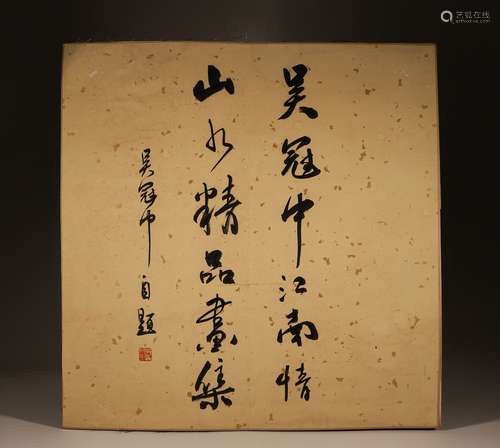 吴冠中江南情
山水精品畫集
吴冠中自題
艺狐在线